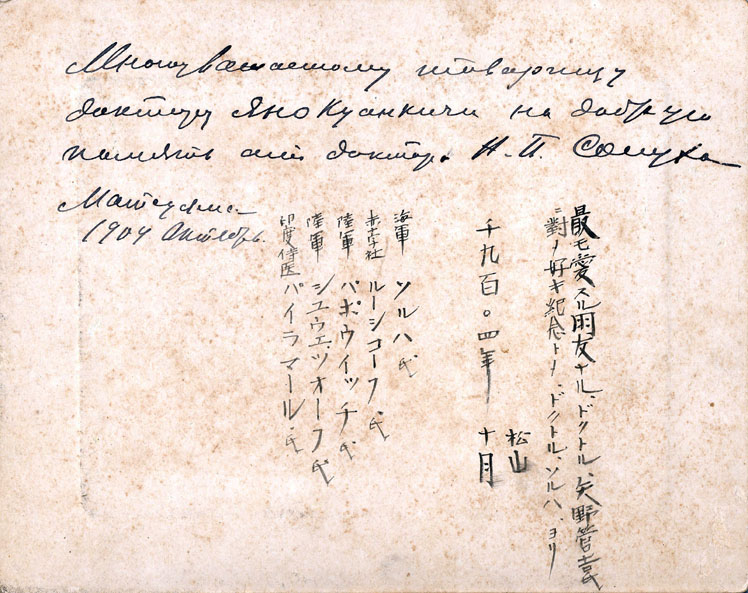 Многоуважаемому товарищу
доктору Яно Куанкичи на добрую
память отъ доктора Н. П. Солуха
Матсуяма
1904 Октябрь.
最モ愛スル朋友ナル、ドクトル、矢野管喜氏
ニ對シ好キ紀念トシ、ドクトル、ソルハ、ヨリ
松山
千九百〇四年 十月
海軍 ソルハ氏
赤十字社 ルーシコーフ氏
陸軍 パポウイッチ氏
陸軍 シユウエツオーフ氏
印度侍医 パイラマール氏